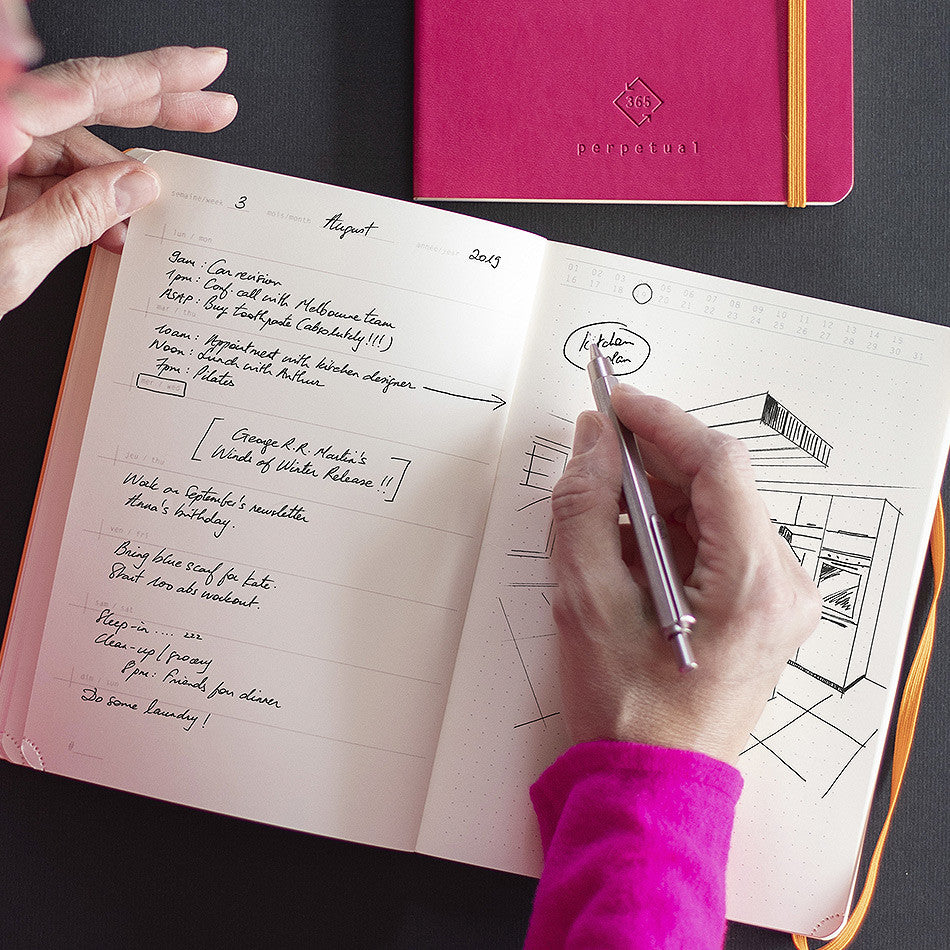 365
perpetual
semaine/week 3 mois/month August année/year 2019
lun / mon
9am : Car revision
1pm : Conf. call with Melbourne team
ASAP : Buy toothpaste (absolutely!!!)
mar / thu
10am : Appointment with kitchen designer
Noon : Lunch with Arthur
7pm : Pilates
mer / wed
George R.R. Martin's
Winds of Winter Release !!
jeu / thu
Work on September's newsletter
Anna's birthday.
ven / fri
Bring blue scarf for Kate.
Start 100 abs workout.
sam / sat
Sleep-in .... zzz
Clean-up / grocery
8pm : Friends for dinner
Do some laundry !
01 02 03 05 06 07 08 09 10 11 12 13 14 15
16 17 18 20 21 22 23 24 25 26 27 28 29 30 31
Kitchen
plan